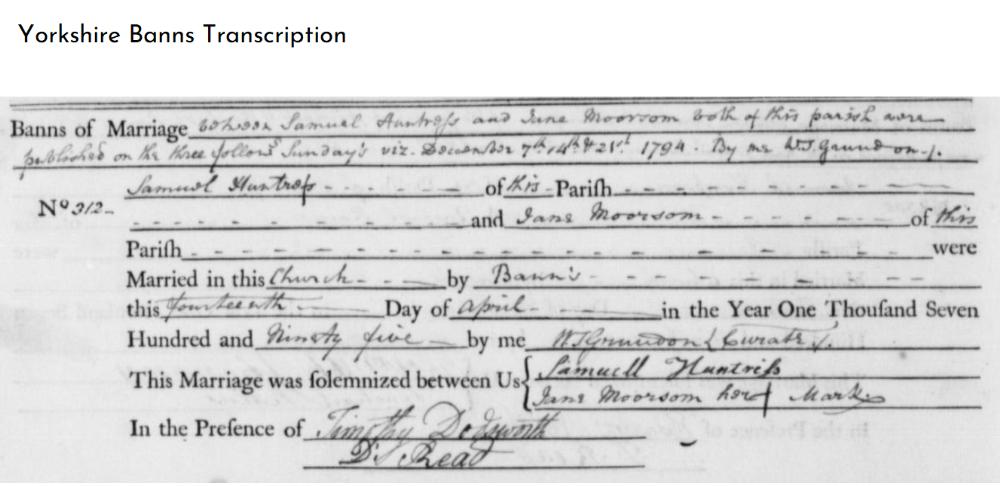 Yorkshire Banns Transcription
Banns of Marriage between Samuel Huntress and Jane Moorsom both of this parish were
published on the three follows Sunday's viz. December 7th, 14th & 21st 1794. By me
Samuel Huntress - - - - - of this - Parish - - - - -
No 312 -
- - - - - and Jane Moorsom - - - - - of this
Parish - - - - - were
Married in this Church - - by Bann's - - - - -
this fourteenth Day of April - in the Year One Thousand Seven
Hundred and Ninety five by me (Curate)
This Marriage was solemnized between Us { Samuell Huntriss
Jane Moorsom her + Mark
In the Presence of Timothy Dodsworth
D: Read